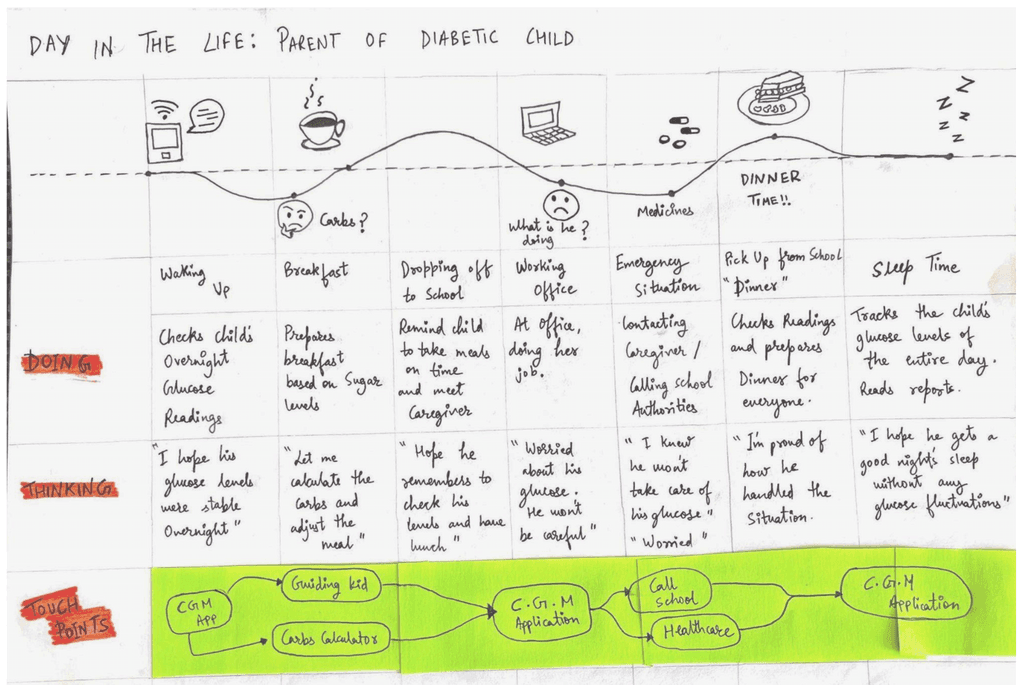 DAY IN THE LIFE: PARENT OF DIABETIC CHILD
Carbs?
What is he doing?
Medicines
DINNER
TIME!!
Z
Z
Z
Z
Z
Waking
Up
Breakfast
Dropping off
to School
Working
Office
Emergency
Situation
Pick Up from School
"Dinner"
Sleep Time
DOING
Checks child's
Overnight
Glucose
Readings
Prepares
breakfast
based on Sugar
levels
Remind child
to take meals
on time
and meet
Caregiver
At Office,
doing her
job.
Contacting
Caregiver /
Calling school
Authorities
Checks Readings
and prepares
Dinner for
everyone.
Tracks the child's
glucose levels of
the entire day.
Reads reports.
THINKING
"I hope his
glucose levels
were stable
Overnight"
"Let me
calculate the
Carbs and
adjust the
meal"
"Hope he
remembers to
check his
levels and have
lunch"
"Worried
about his
glucose.
He won't
be careful"
"I knew
he won't
take care of
his glucose"
"Worried"
"I'm proud of
how he
handled the
Situation.
"I hope he gets a
good night's sleep
without any
glucose fluctuations"
TOUCH
POINTS
CGM
APP
Guiding kid
Carbs Calculator
C.G.M
Application
Call
School
Healthcare
C.G.M
Application